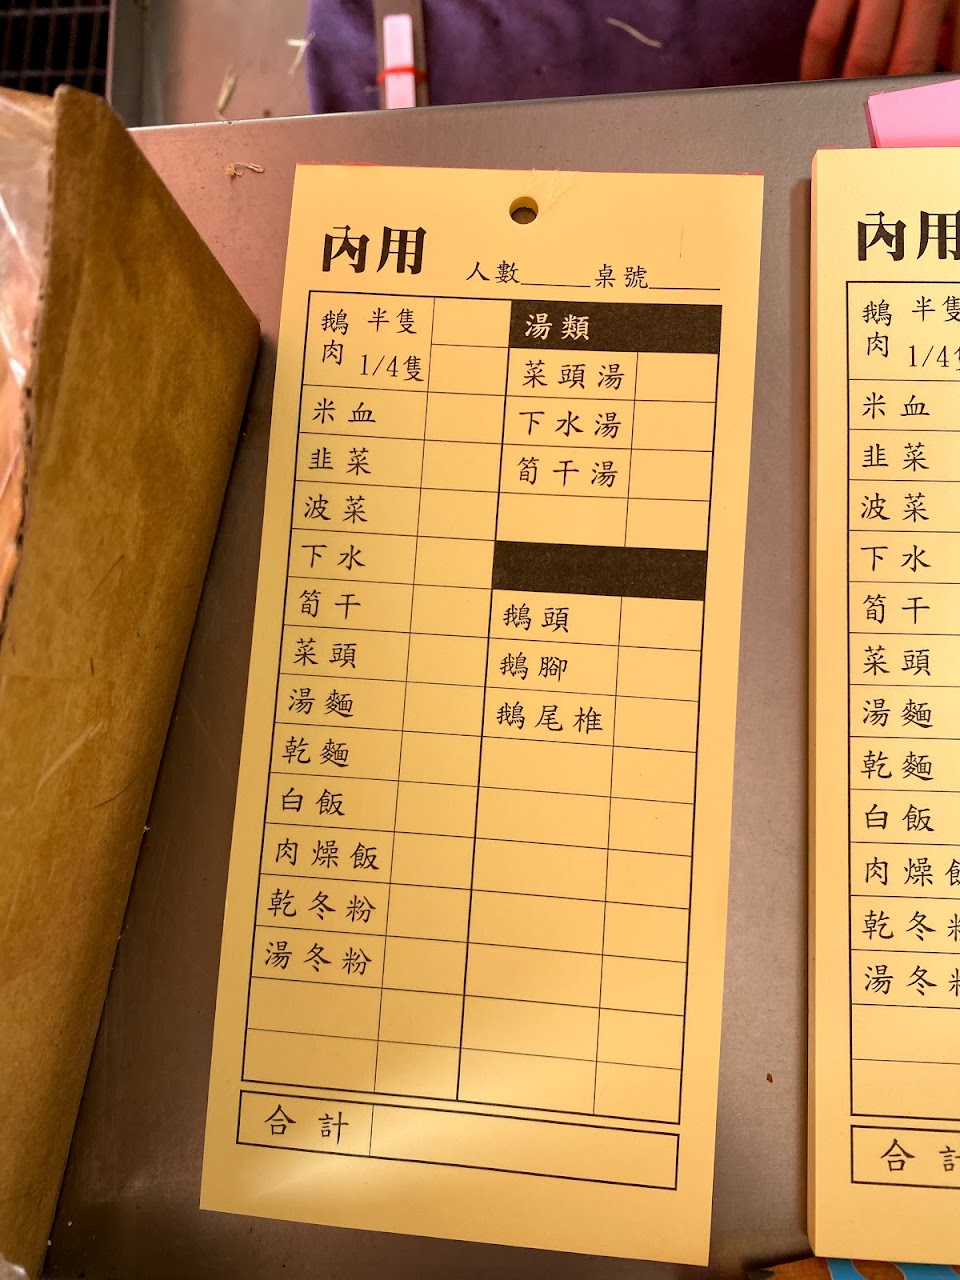 內用
人數 桌號
鵝肉 半隻
1/4隻
米血
韭菜
波菜
下水
筍干
菜頭
湯麵
乾麵
白飯
肉燥飯
乾冬粉
湯冬粉
湯類
菜頭湯
下水湯
筍干湯
鵝頭
鵝腳
鵝尾椎
合計
內用
鵝肉 半隻
1/4隻
米血
韭菜
波菜
下水
筍干
菜頭
湯麵
乾麵
白飯
肉燥飯
乾冬粉
湯冬粉
合計